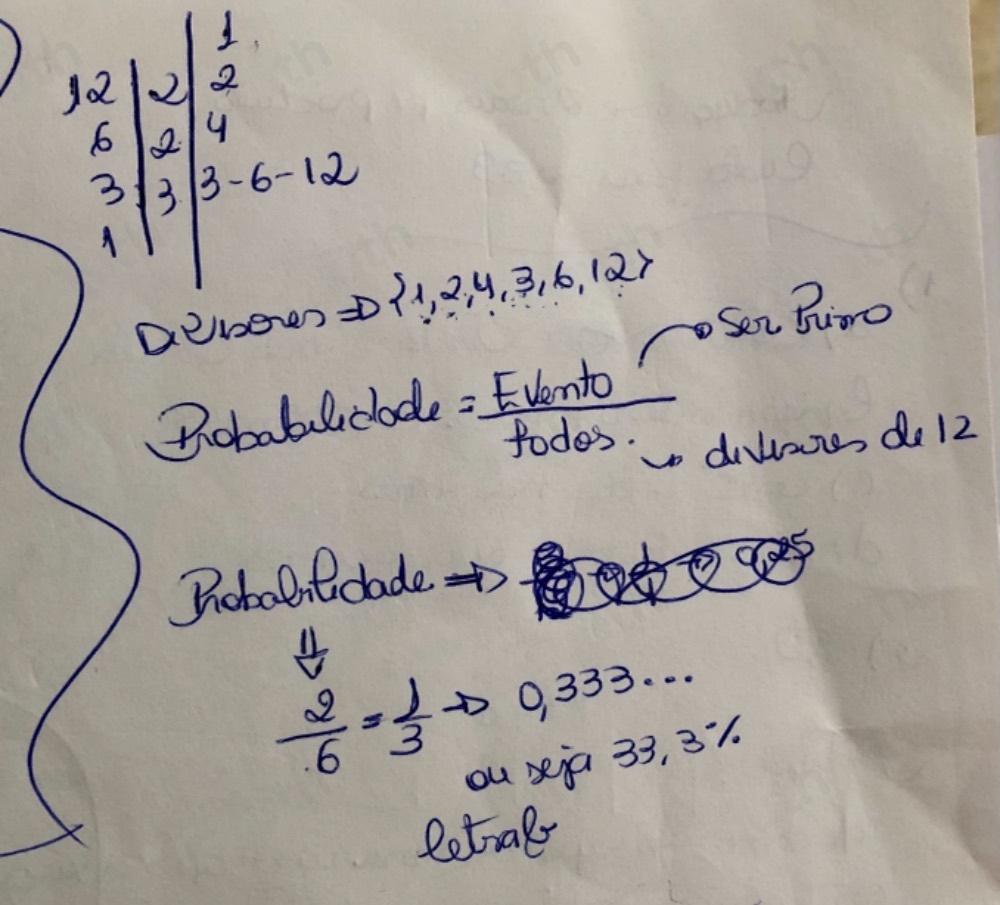 1
12 | 2 | 2
6 | 2 | 4
3 | 3 | 3-6-12
1
Divisores ⇒ {1,2,4,3,6,12}
Probabilidade = Evento → Ser Primo
todos. → divisores de 12
Probabilidade ⇒
⇓
2/6 = 1/3 → 0,333...
ou seja 33,3%
letra b